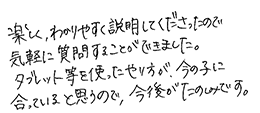 楽しく,わかりやすく説明してくださったので
気軽に質問することができました。
タブレット等を使ったやり方が、今の子に
合っていると思うので,今後がたのしみです。